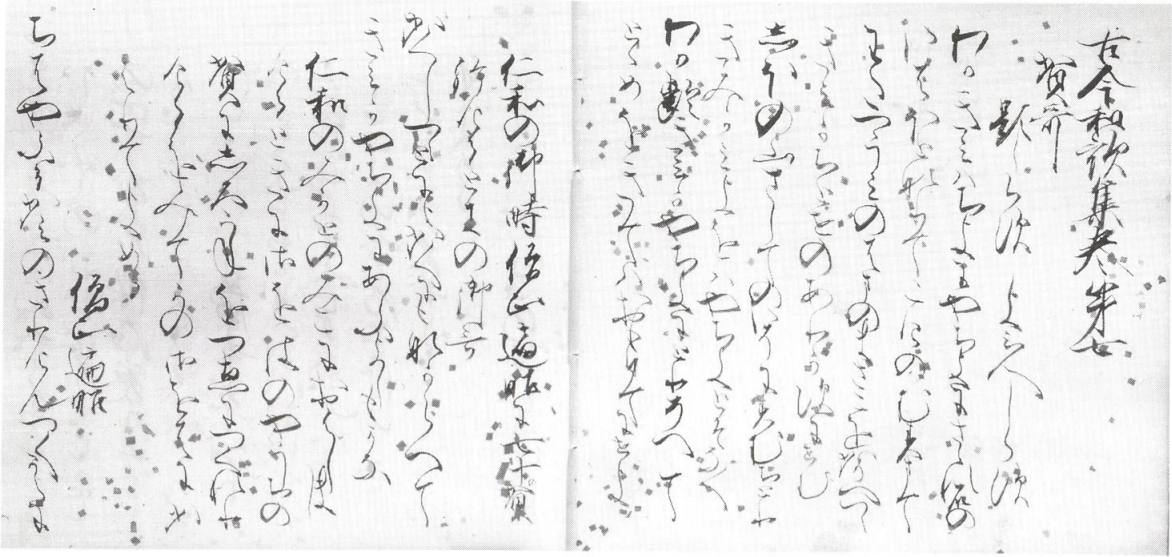 古今和歌集巻第七
賀哥
題しらす　よみ人しらす
わかきみはちよにやちよにさゝれ
いはほとなりてこけのむすまて
わたつうみのはまのまさこをかそへつゝ
きみかちとせのありかすにせむ
しほの山さしてのいそにすむちとり
きみかみよをはやちよとそなく
わか齢きみかやちよにとりそへて
とゝめをきてはおもひてにせよ
仁和の御時僧正遍昭に七十賀
給けるときの御哥
かくしつゝとにもかくにもなからへて
きみかやちよにあふよしもかな
仁和のみかとのみこにおはしま
けるときに御をはのやそちの
賀にしろかねをつゑにつくれり
けるをみてかの御をはにか
はりてよめ
僧正遍昭
ちはやふるかみのきりけんつくからに